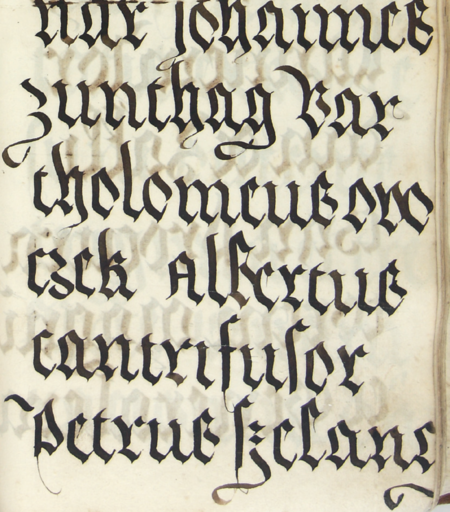 nar Johannes
zunthag Bar
tholomeus owo
czek Albertus
cantrifusor
Petrus szelang